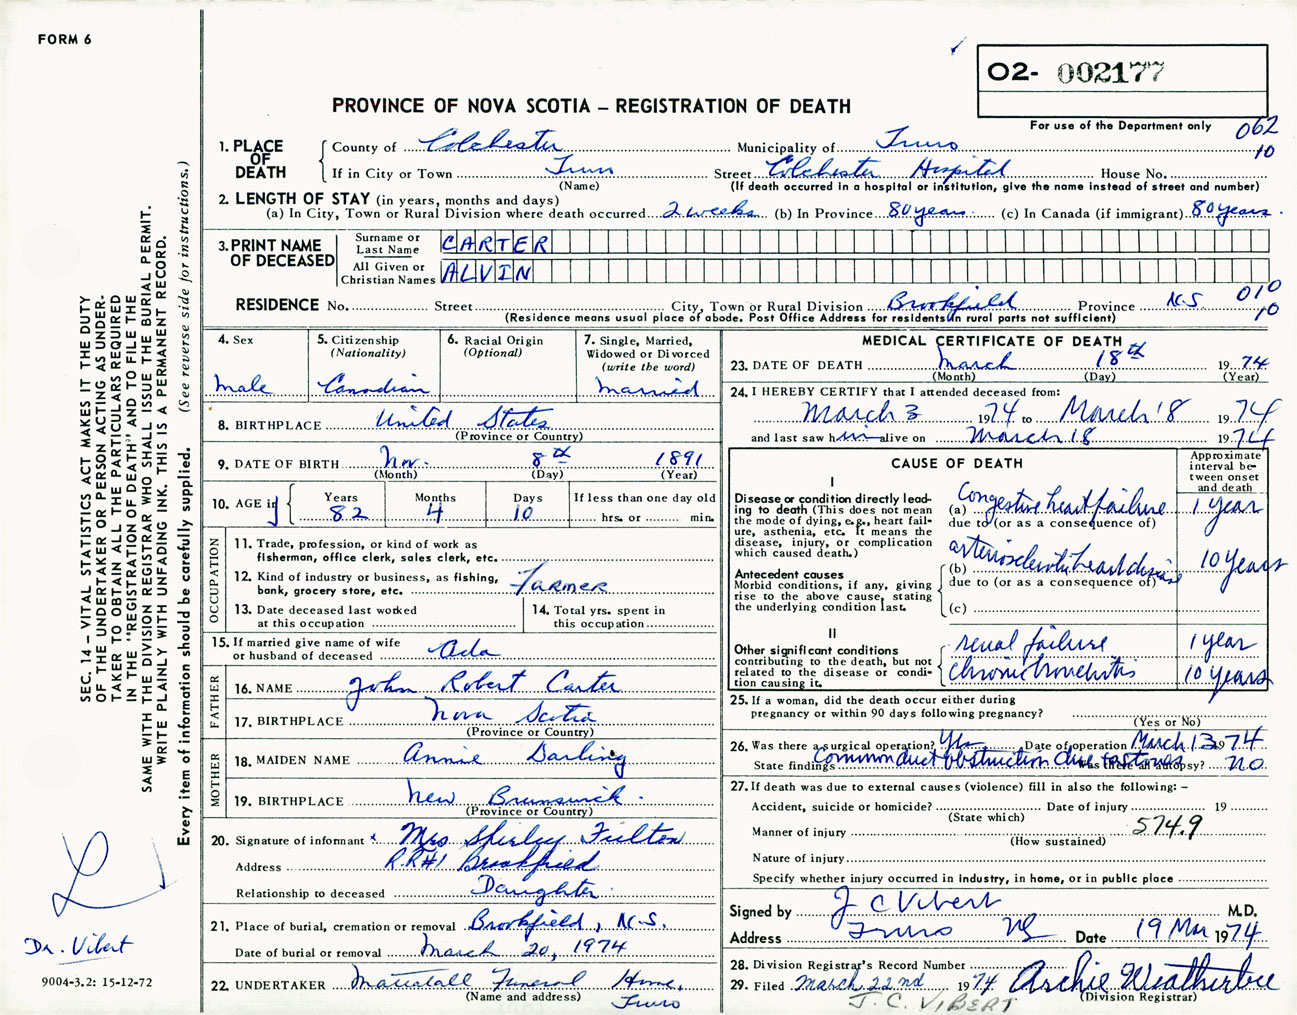 FORM 6
O2- 002177
PROVINCE OF NOVA SCOTIA – REGISTRATION OF DEATH
For use of the Department only 062
10
1. PLACE OF DEATH
County of Colchester Municipality of Truro
If in City or Town Truro Street Colchester Hospital House No.
(Name) (If death occurred in a hospital or institution, give the name instead of street and number)
2. LENGTH OF STAY (in years, months and days)
(a) In City, Town or Rural Division where death occurred 2 weeks (b) In Province 80 years (c) In Canada (if immigrant) 80 years
3. PRINT NAME OF DECEASED
Surname or Last Name CARTER
All Given or Christian Names ALVIN
RESIDENCE No. Street City, Town or Rural Division Brookfield Province N.S 010
10
(Residence means usual place of abode. Post Office Address for residents in rural parts not sufficient)
4. Sex
male
5. Citizenship
(Nationality)
Canadian
6. Racial Origin
(Optional)
7. Single, Married,
Widowed or Divorced
(write the word)
Married
8. BIRTHPLACE United States
(Province or Country)
9. DATE OF BIRTH Nov. 8th 1891
(Month) (Day) (Year)
10. AGE in
Years Months Days If less than one day old
82 4 10 hrs. or min.
OCCUPATION
11. Trade, profession, or kind of work as
fisherman, office clerk, sales clerk, etc.
12. Kind of industry or business, as fishing,
bank, grocery store, etc. Farmer
13. Date deceased last worked
at this occupation
14. Total yrs. spent in
this occupation
15. If married give name of wife
or husband of deceased Ada
FATHER
16. NAME John Robert Carter
17. BIRTHPLACE Nova Scotia
(Province or Country)
MOTHER
18. MAIDEN NAME Annie Darling
19. BIRTHPLACE New Brunswick.
(Province or Country)
20. Signature of informant x Mrs Shirley Fulton
Address R.R#1 Brookfield
Relationship to deceased Daughter
21. Place of burial, cremation or removal Brookfield, N.S.
Date of burial or removal March 20, 1974
22. UNDERTAKER Mattatall Funeral Home,
(Name and address) Truro
MEDICAL CERTIFICATE OF DEATH
23. DATE OF DEATH March 18th 19 74
(Month) (Day) (Year)
24. I HEREBY CERTIFY that I attended deceased from:
March 3 1974 to March 18 1974
and last saw him alive on March 18 1974
CAUSE OF DEATH
Approximate
interval be-
tween onset
and death
I
Disease or condition directly lead-
ing to death (This does not mean
the mode of dying, e.g., heart fail-
ure, asthenia, etc. It means the
disease, injury, or complication
which caused death.)
(a) Congestive heart failure 1 year
due to (or as a consequence of)
Antecedent causes
Morbid conditions, if any, giving
rise to the above cause, stating
the underlying condition last.
(b) arteriosclerotic heart disease 10 years
due to (or as a consequence of)
(c)
II
Other significant conditions
contributing to the death, but not
related to the disease or condi-
tion causing it.
renal failure 1 year
chronic bronchitis 10 years
25. If a woman, did the death occur either during
pregnancy or within 90 days following pregnancy?
(Yes or No)
26. Was there a surgical operation? Yes Date of operation March 13 1974
State findings Common duct obstruction due to stones Was there an autopsy? no
27. If death was due to external causes (violence) fill in also the following: –
Accident, suicide or homicide? Date of injury 19
(State which)
Manner of injury 574.9
(How sustained)
Nature of injury
Specify whether injury occurred in industry, in home, or in public place
Signed by J C Vibert M.D.
Address Truro NS Date 19 Mar 1974
28. Division Registrar's Record Number
29. Filed March 22nd 1974 Archie Weatherbee
J. C. VIBERT (Division Registrar)
SEC. 14 – VITAL STATISTICS ACT MAKES IT THE DUTY
OF THE UNDERTAKER OR PERSON ACTING AS UNDER-
TAKER TO OBTAIN ALL THE PARTICULARS REQUIRED
IN THE "REGISTRATION OF DEATH" AND TO FILE THE
SAME WITH THE DIVISION REGISTRAR WHO SHALL ISSUE THE BURIAL PERMIT.
WRITE PLAINLY WITH UNFADING INK. THIS IS A PERMANENT RECORD.
Every item of information should be carefully supplied. (See reverse side for instructions.)
Dr. Vibert
9004-3.2: 15-12-72